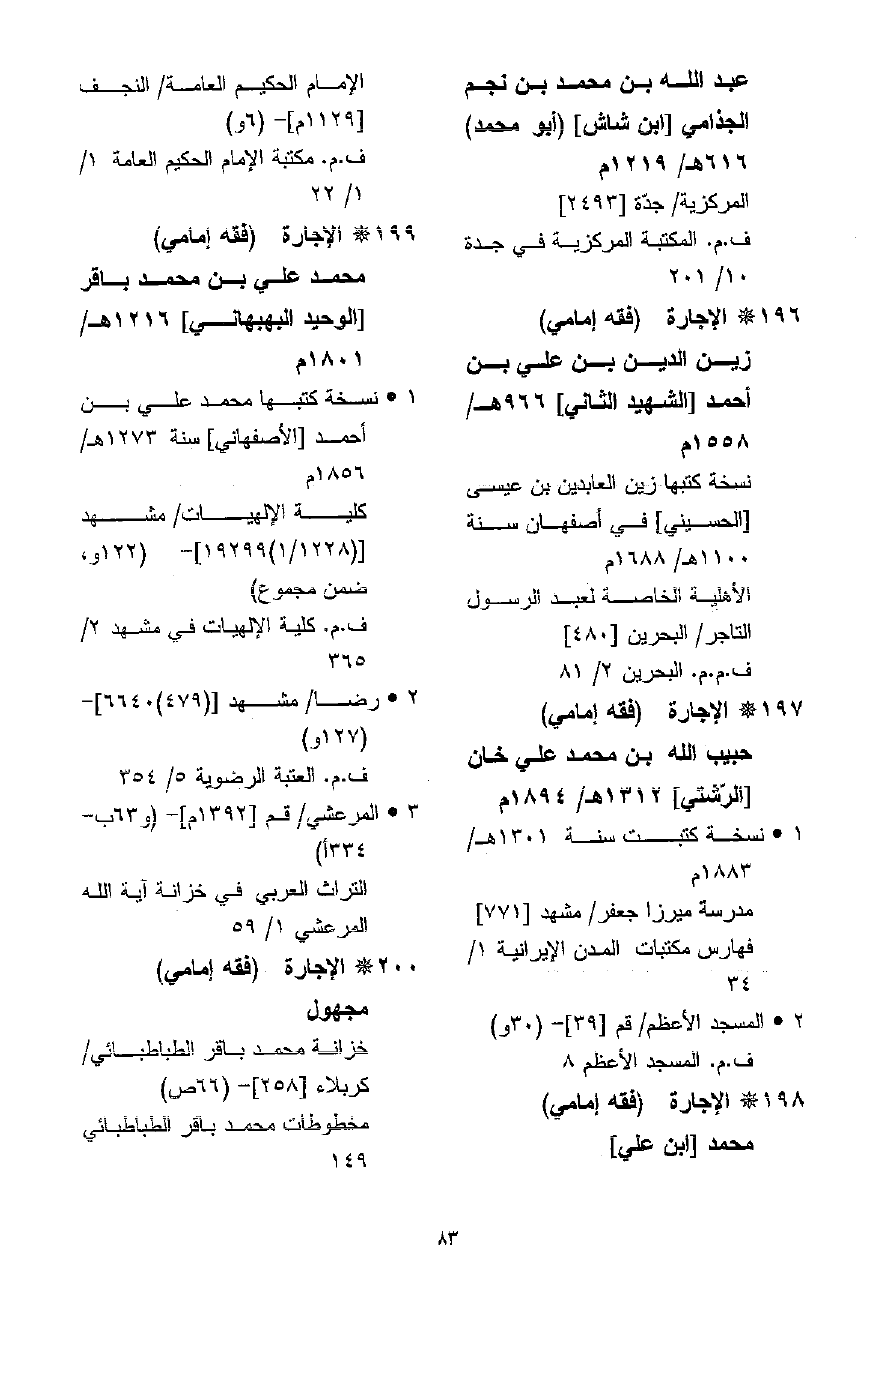 عبد الله بن محمد بن نجم
الجذامي [ابن شاش] (أبو محمد)
٦١٦هـ/ ١٢١٩م
المركزية/ جدّة [٢٤٩٣]
ف.م. المكتبة المركزية في جدة
١٠/ ٢٠١
١٩٦* الإجارة (فقه إمامي)
زين الدين بن علي بن
أحمد [الشهيد الثاني] ٩٦٦هـ/
١٥٥٨م
نسخة كتبها زين العابدين بن عيسى
[الحسيني] في أصفهان سنة
١١٠٠هـ/ ١٦٨٨م
الأهلية الخاصة لعبد الرسول
التاجر/ البحرين [٤٨٠]
ف.م.م. البحرين ٢/ ٨١
١٩٧* الإجارة (فقه إمامي)
حبيب الله بن محمد علي خان
[الرّشتي] ١٣١٢هـ/ ١٨٩٤م
١ • نسخة كتبت سنة ١٣٠١هـ/
١٨٨٣م
مدرسة ميرزا جعفر/ مشهد [٧٧١]
فهارس مكتبات المدن الإيرانية ١/
٣٤
٢ • المسجد الأعظم/ قم [٣٩]- (٣٠و)
ف.م. المسجد الأعظم ٨
١٩٨* الإجارة (فقه إمامي)
محمد [ابن علي]
الإمام الحكيم العامة/ النجف
[١١٢٩م]- (٦و)
ف.م. مكتبة الإمام الحكيم العامة ١/
١/ ٢٢
١٩٩* الإجارة (فقه إمامي)
محمد علي بن محمد باقر
[الوحيد البهبهاني] ١٢١٦هـ/
١٨٠١م
١ • نسخة كتبها محمد علي بن
أحمد [الأصفهاني] سنة ١٢٧٣هـ/
١٨٥٦م
كلية الإلهيات/ مشهد
[(١/١٢٢٨)١٩٢٩٩]- (١٢٢و،
ضمن مجموع)
ف.م. كلية الإلهيات في مشهد ٢/
٣٦٥
٢ • رضا/ مشهد [(٤٧٩)٦٦٤٠]-
(١٢٧و)
ف.م. العتبة الرضوية ٥/ ٣٥٤
٣ • المرعشي/ قم [١٣٩٢م]- (و٦٣ب-
٣٣٤أ)
التراث العربي في خزانة آية الله
المرعشي ١/ ٥٩
٢٠٠* الإجارة (فقه إمامي)
مجهول
خزانة محمد باقر الطباطبائي/
كربلاء [٢٥٨]- (٦٦ص)
مخطوطات محمد باقر الطباطبائي
١٤٩
٨٣